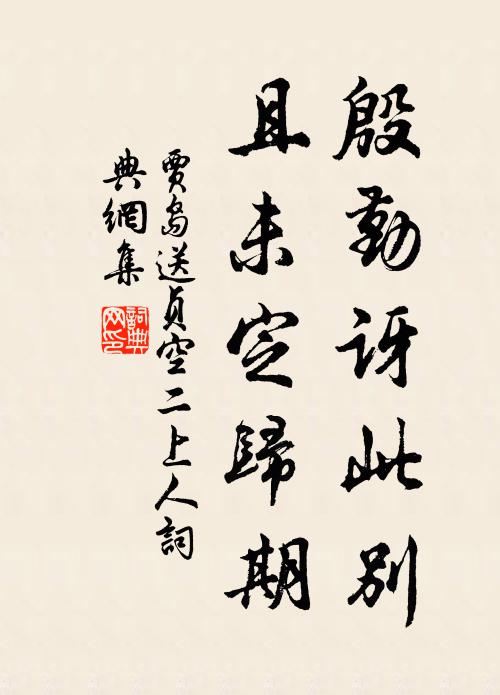 殷勤訝此別
且未定歸期
賈島送貞空二上人詞
典網集
詞典
网印